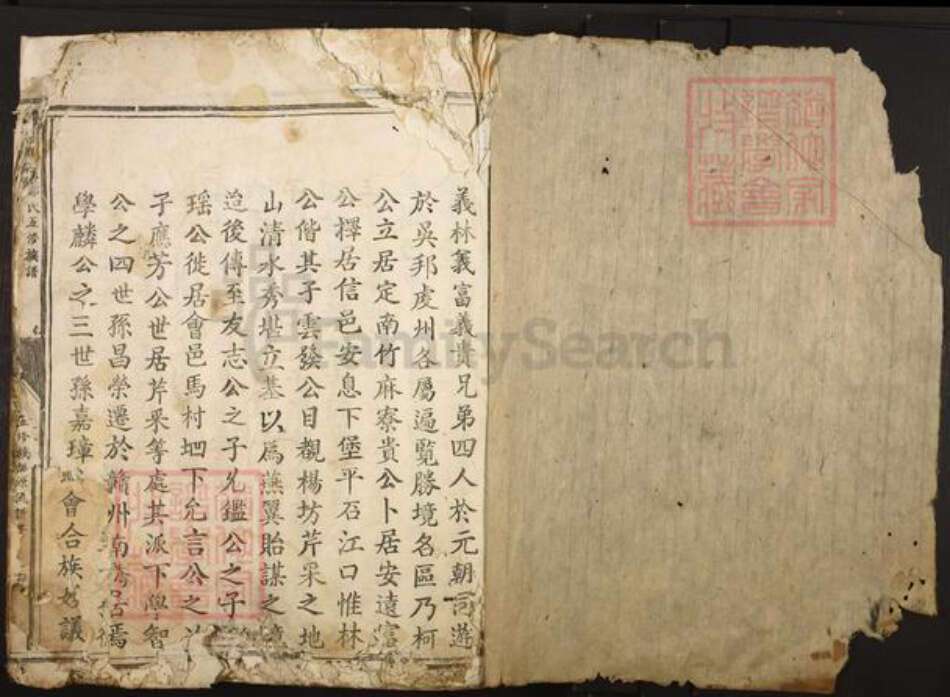 義林義富義貴兄弟四人於元朝同遊
於吳邦虔州各屬遍覽勝境名區乃柯
公立居定南竹麻寮貴公卜居安遠富
公擇居信邑安息下堡平石江口惟林
公偕其子雲發公目覩楊坊芹菜之地
山清水秀堪立基以為燕翼貽謀之
迨後傳至友志公之子允鑑公之子
瑤公徙居會邑馬村坳下允言公之
子應芳公世居芹菜等處其派下學智
公之四世孫昌榮遷於贛州南 居焉
學麟公之三世孫嘉璋 會合族 議
氏五修族譜
五修族譜源流
FamilySearch